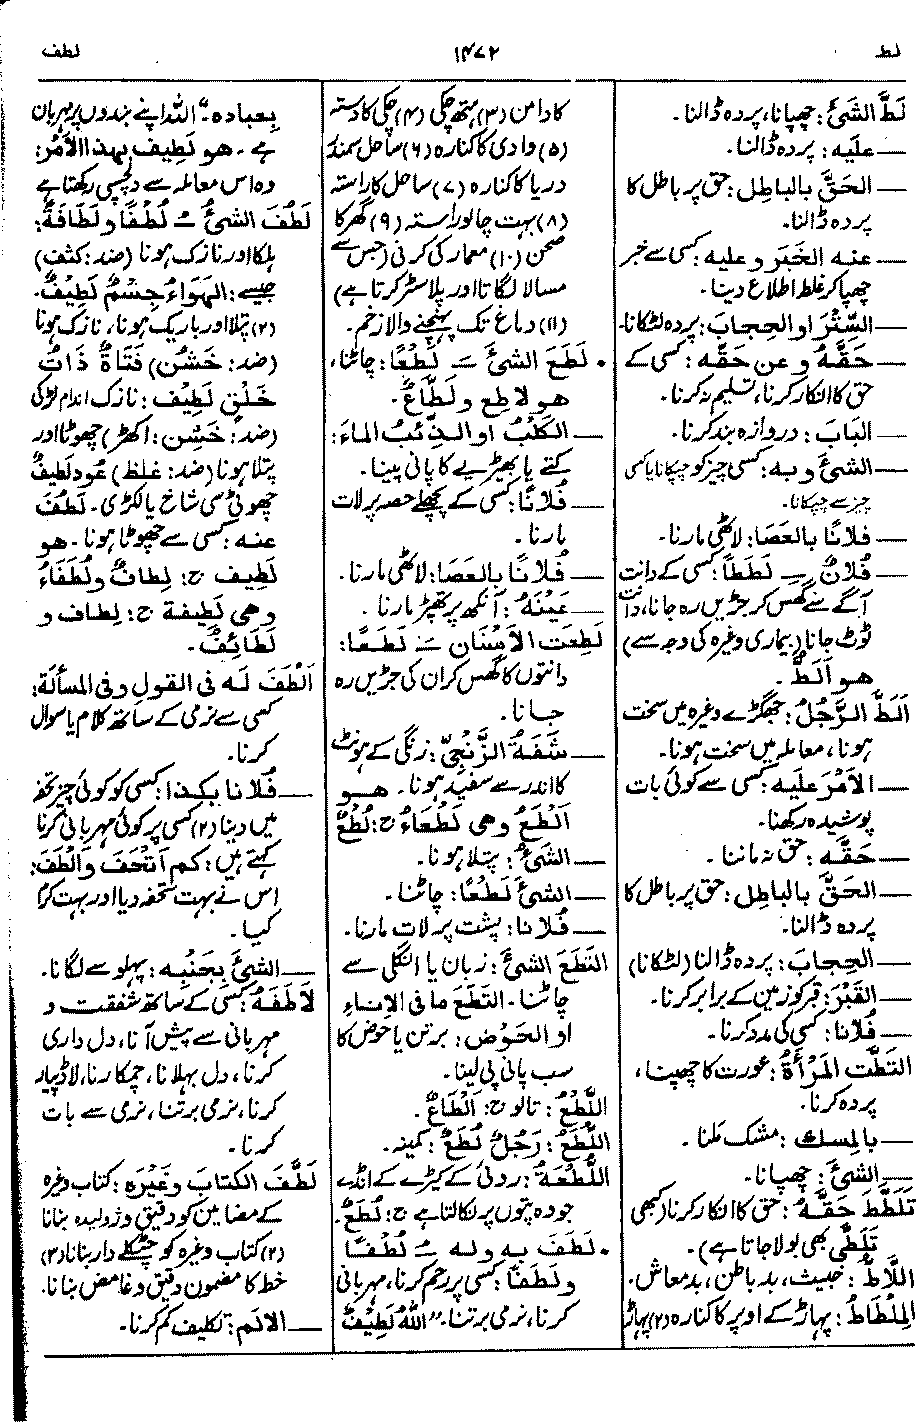 لط ۱۴۷۲ لطف
لَطَّ الشَّیْءَ: چھپانا، پردہ ڈالنا۔
— علیه: پردہ ڈالنا۔
— الحَقَّ بالباطِل: حق پر باطل کا
پردہ ڈالنا۔
— عنه الخَبَرَ و علیه: کسی سے خبر
چھپا کر غلط اطلاع دینا۔
— السِّتْرَ او الحِجابَ: پردہ لٹکانا۔
— حَقَّهُ و عن حَقِّه: کسی کے
حق کا انکار کرنا، تسلیم نہ کرنا۔
— البابَ: دروازہ بند کرنا۔
— الشیْءَ و به: کسی چیز کو چپکانا یا کسی
چیز سے چپکانا۔
— فلانًا بالعَصَا: لاٹھی مارنا۔
— فُلانٌ ـَ لَطَطاً: کسی کے دانت
آگے سے گھس کر جڑیں رہ جانا، دانت
ٹوٹ جانا (بیماری وغیرہ کی وجہ سے)
هو أَلَطُّ۔
اَلَطَّ الرَّجُلُ: جھگڑے وغیرہ میں سخت
ہونا، معاملہ میں سخت ہونا۔
— الاَمْرَ علیه: کسی سے کوئی بات
پوشیدہ رکھنا۔
— حَقَّه: حق نہ ماننا۔
— الحَقَّ بالباطِل: حق پر باطل کا
پردہ ڈالنا۔
— الحِجابَ: پردہ ڈالنا (لٹکانا)
— القَبْرَ: قبر کو زمین کے برابر کرنا۔
— فُلانا: کسی کی مدد کرنا۔
التَطَّت المَرْأَةُ: عورت کا چھپنا،
پردہ کرنا۔
— بالمِسك: مشک ملنا۔
— الشیْءَ: چھپانا۔
تَلَطَّطَ حَقَّهُ: حق کا انکار کرنا (کبھی
تَلَطّٰی بھی بولا جاتا ہے)۔
اللَّاطُّ: خبیث، بد باطن، بدمعاش۔
المِلْطَاطُ: پہاڑ کے اوپر کا کنارہ (۲) پہاڑ
کا دامن (۳) ہتھ چکی (۴) چکی کا دستہ
(۵) وادی کا کنارہ (۶) ساحل سمندر
دریا کا کنارہ (۷) ساحل کا راستہ
(۸) بہت چالو راستہ (۹) گھر کا
صحن (۱۰) معمار کی کرنی (جس سے
مسالا لگاتا اور پلاسٹر کرتا ہے)
(۱۱) دماغ تک پہنچنے والا زخم۔
• لَطَعَ الشیْءَ ـَ لَطْعًا: چاٹنا،
هو لاطِع و لَطَّاعٌ۔
— الکَلْبُ او الذِّئبُ الماءَ:
کتے یا بھیڑیے کا پانی پینا۔
— فُلانًا: کسی کے پچھلے حصہ پر لات
مارنا۔
— فُلانًا بالعصا: لاٹھی مارنا۔
— عَیْنَهُ: آنکھ پر تھپڑ مارنا۔
لَطِعَت الاَسْنان ـَ لَطَعًا:
دانتوں کا گھس کر ان کی جڑیں رہ
جانا۔
— شَفَةُ الزَّنْجِیّ: زنگی کے ہونٹ
کا اندر سے سفید ہونا۔ هو
اَلْطَعُ وهی لَطْعَاءُ ج: لُطْعٌ
— الشیْءُ: پتلا ہونا۔
— الشیْءَ لَطْعًا: چاٹنا۔
— فُلانا: پشت پر لات مارنا۔
التَطَعَ الشیْءَ: زبان یا انگلی سے
چاٹنا۔ التَطَعَ ما فی الإناءِ
او الحَوْض: برتن یا حوض کا
سب پانی پی لینا۔
اللَّطْعُ: تالو ج: اَلْطَاعٌ۔
اللُّطَعُ: رَجُلٌ لُطَعٌ: کمینہ۔
اللُّطْعَةُ: روئی کے کیڑے کے انڈے
جو وہ پتوں پر نکالتا ہے ج: لُطَعٌ۔
• لَطَفَ به وله ـُ لُطْفًا
و لَطَفًا: کسی پر رحم کرنا، مہربانی
کرنا، نرمی برتنا۔ "اللهُ لَطِیْفٌ
بِعباده۔" اللہ اپنے بندوں پر مہربان
ہے۔ هو لَطِیف بهذا الأَمْر:
وہ اس معاملہ سے دلچسپی رکھتا ہے
لَطُفَ الشیءُ ـُ لُطْفًا و لَطَافَةً:
ہلکا اور نازک ہونا (ضد: کثف)
جیسے: الهَوَاءُ جِسْمٌ لَطِیْفٌ۔
(۲) پتلا اور باریک ہونا، نازک ہونا
(ضد: خَشُن) فَتَاةٌ ذَاتُ
خَلْقٍ لَطِیْف: نازک اندام لڑکی
(ضد: خَشِن: اکھڑ) چھوٹا اور
پتلا ہونا (ضد: غلظ) عُود لَطِیفٌ
چھوٹی سی شاخ یا لکڑی۔ لَطُفَ
عنه: کسی سے چھوٹا ہونا۔ هو
لَطِیف ج: لِطافٌ ولُطَفَاءُ
وهی لَطِیفة ج: لِطاف و
لَطَائِفُ۔
اَلْطَفَ لَه فی القَول و فی المسألَة:
کسی سے نرمی کے ساتھ کلام یا سوال
کرنا۔
— فُلانا بکذا: کسی کو کوئی چیز تحفہ
میں دینا (۲) کسی پر کوئی مہربانی کرنا
کہتے ہیں: کم اَتْحَفَ وأَلْطَفَ:
اس نے بہت تحفہ دیا اور بہت کرم
کیا۔
— الشیْءَ بِجَنْبِه: پہلو سے لگانا۔
لاَطَفَهُ: کسی کے ساتھ شفقت و
مہربانی سے پیش آنا، دل داری
کرنا، دل بہلانا، چمکارنا، لاڈ پیار
کرنا، نرمی برتنا، نرمی سے بات
کرنا۔
لَطَّفَ الکتابَ وغَیْرَه: کتاب وغیرہ
کے مضامین کو دقیق و ژولیدہ بنانا
(۲) کتاب وغیرہ کو چٹکلے دار بنانا (۳)
خط کا مضمون دقیق و غامض بنانا۔
— الاَلَم: تکلیف کم کرنا۔